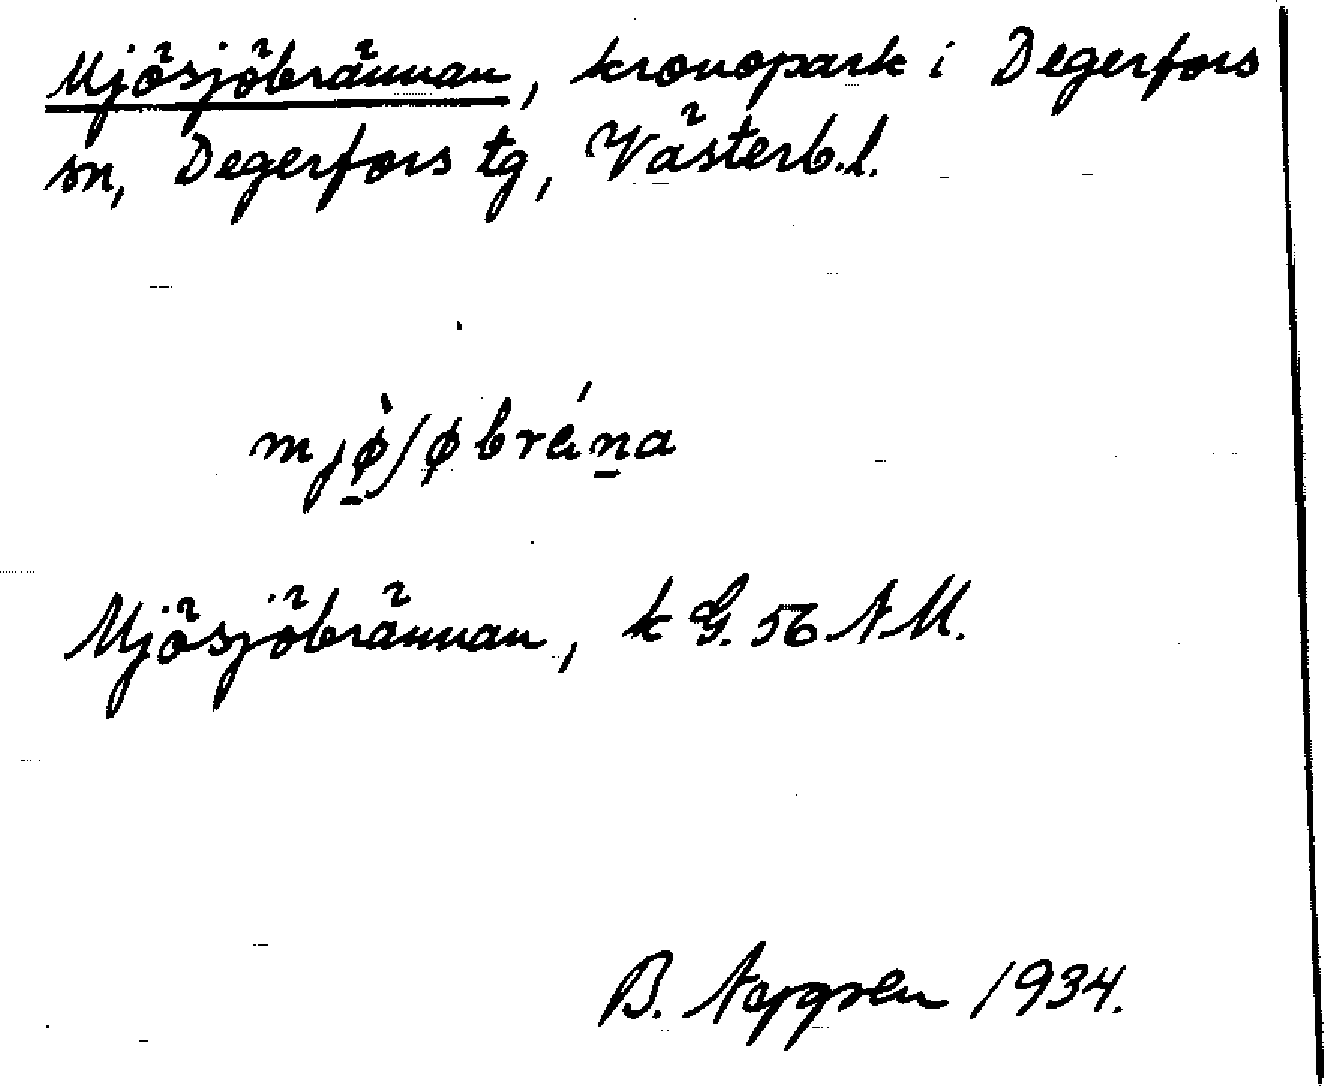 Mjösjöbrännan, kronopark i Degerfors
sn, Degerfors tg, Västerb.l.
mjø̠̀ʃøbrän̠a
Mjösjöbrännan, k G. 56 N M.
B. Nygren 1934.